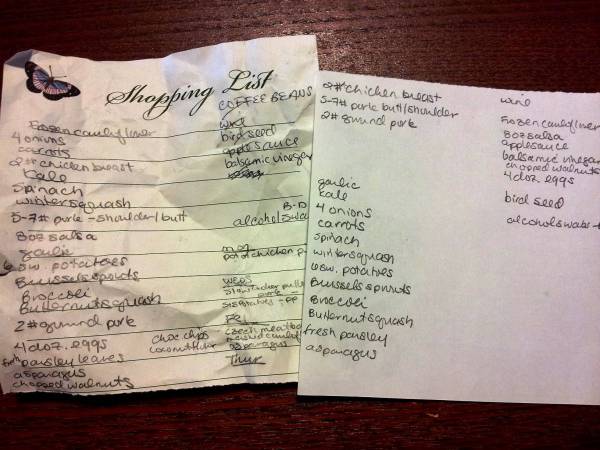 Shopping List
COFFEE BEANS
Frozen cauliflower
4 onions
carrots
2# chicken breast
kale
spinach
winter squash
5-7# pork - shoulder/butt
8oz salsa
garlic
6 sw. potatoes
Brussels sprouts
Broccoli
Butternut squash
2# ground pork
4 doz. eggs
fresh parsley leaves
asparagus
chopped walnuts
wine
bird seed
apple sauce
balsamic vinegar
B-D
alcohol swa
choc chips
coconut
mon
pot of chicken
WEDS
slow cooker pull
pork
sw potatoes
Fri
czech meatba
mashed caulif
asparagus
Thur
2# chicken breast
5-7# pork butt/shoulder
2# ground pork
garlic
kale
4 onions
carrots
spinach
winter squash
6 sw. potatoes
Brussels sprouts
Broccoli
Butternut squash
fresh parsley
asparagus
wine
Frozen cauliflower
8oz salsa
applesauce
balsamic vinegar
chopped walnuts
4 doz. eggs
bird seed
alcohol swabs